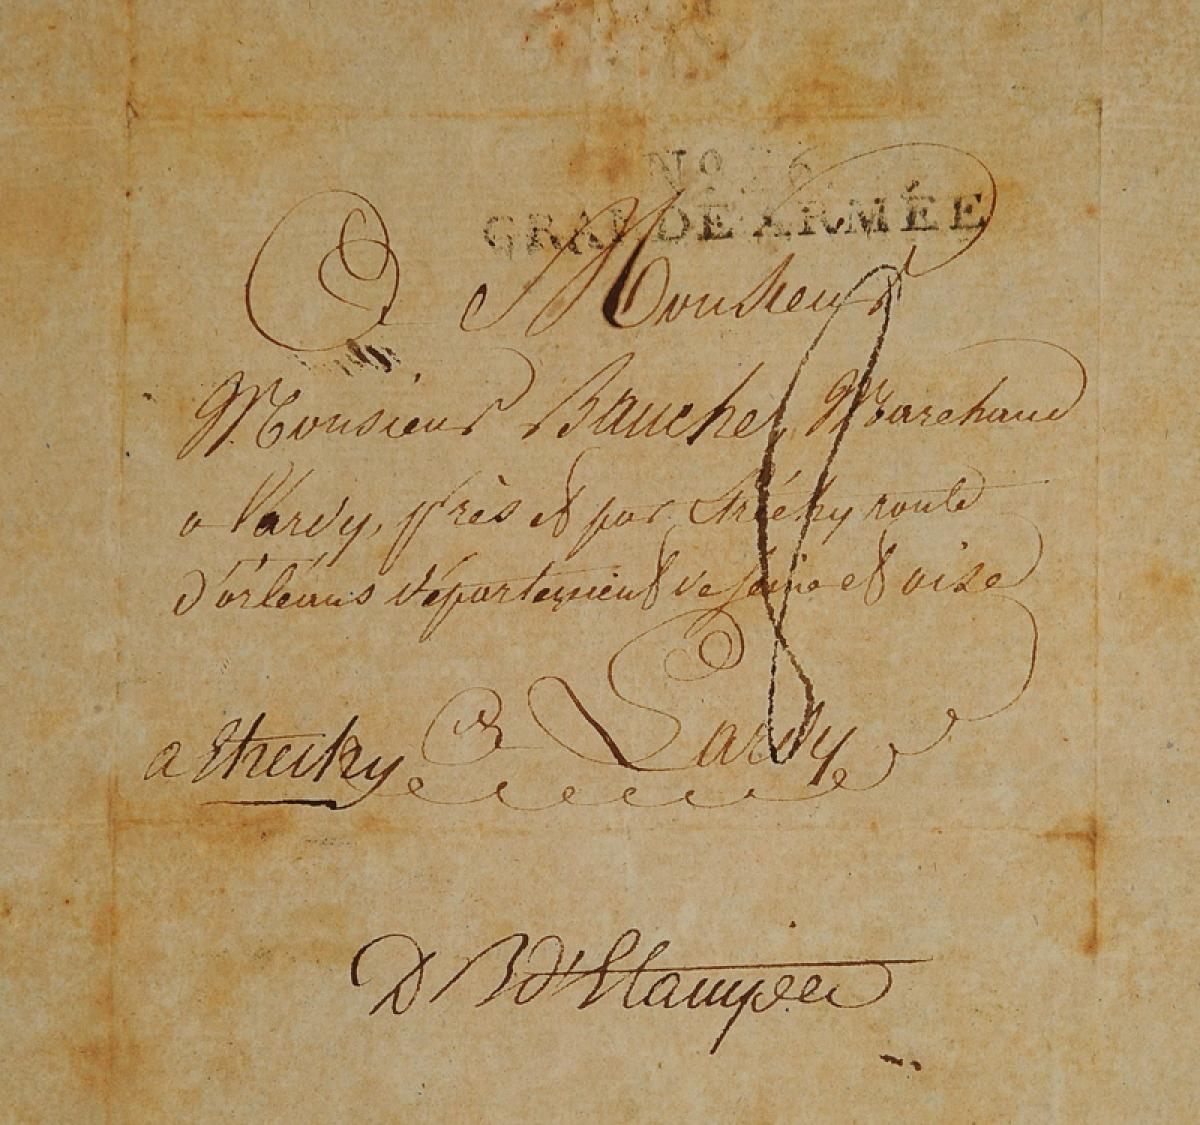 No 26.
GRANDE ARMÉE
A Monsieur
Monsieur Baucher, Marchand
a Lardy, près et par Etréchy route
d'orléans département de seine et oise
a Etrechy Lardy
D B d'Etampes